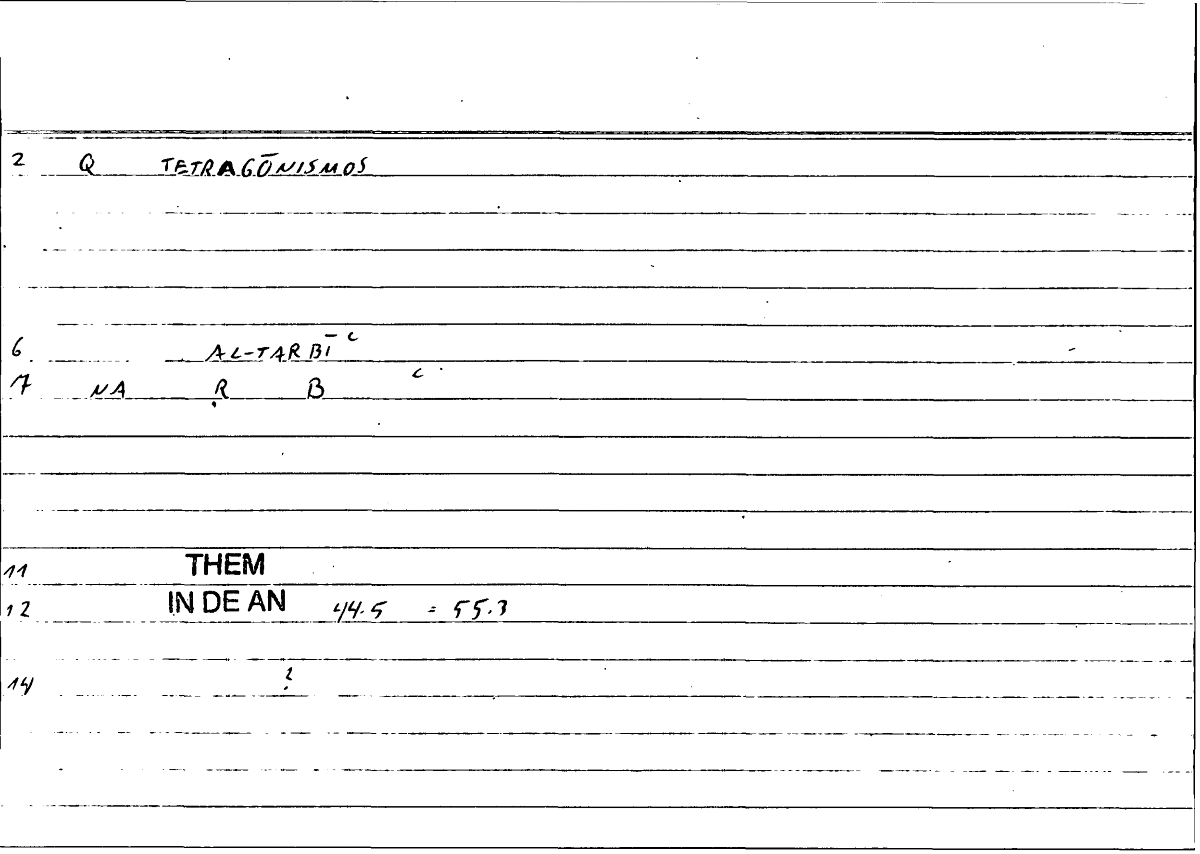 2 Q TETRAGŌNISMOS
6 AL-TARBĪʿ
7 NA Ṛ B ʿ
11 THEM
12 IN DE AN 44.5 = 55.3
14 ?